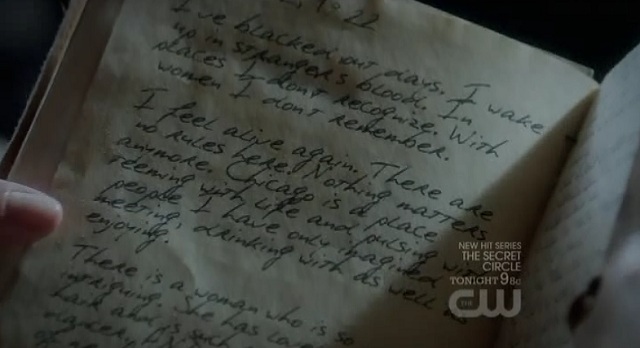 1922
I've blacked out days. I wake
up in stranger's blood. In
places I don't recognize. With
women I don't remember.
I feel alive again. There are
no rules here. Nothing matters
anymore. Chicago is a place
teeming with life and pulsing with
people I have only imagined
meeting, drinking with as well as
enjoying.
There is a woman who is so
intriguing. She has
hair and is such
dancer,
NEW HIT SERIES
THE SECRET
CIRCLE
TONIGHT 9 8c
THE CW